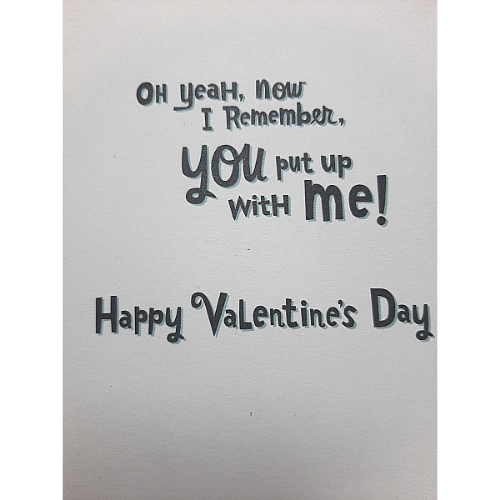 Oh yeah, now
I Remember,
you put up
with me!
Happy Valentine's Day